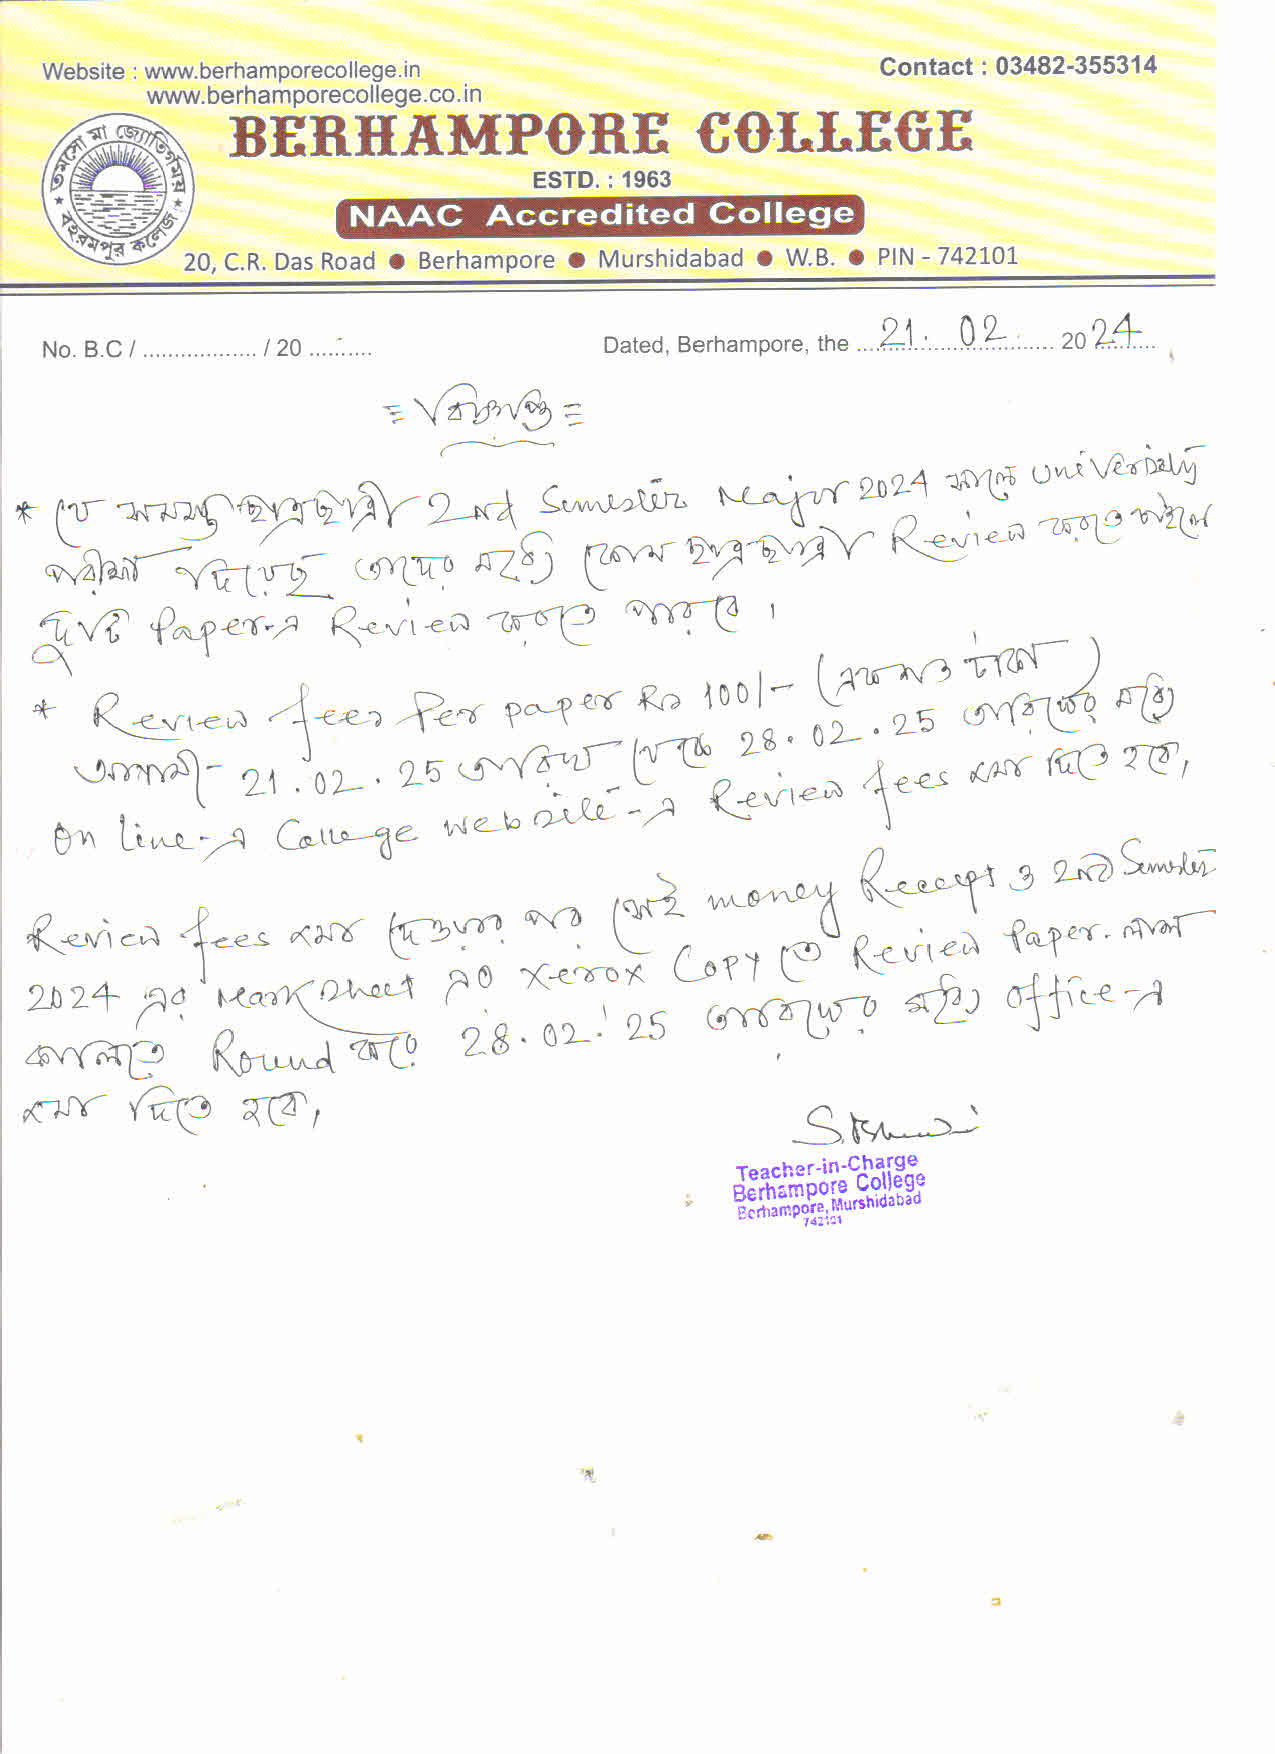 Website : www.berhamporecollege.in
Contact : 03482-355314
www.berhamporecollege.co.in
তমসো মা জ্যোতির্গময়
বহরমপুর কলেজ
BERHAMPORE COLLEGE
ESTD. : 1963
NAAC Accredited College
20, C.R. Das Road ● Berhampore ● Murshidabad ● W.B. ● PIN - 742101
No. B.C / .................. / 20 ..........
Dated, Berhampore, the 21. 02. 2024
= বিজ্ঞপ্তি =
* যে সমস্ত ছাত্রছাত্রী 2nd Semester Major 2024 সালে University
পরীক্ষা দিয়েছে তাদের মধ্যে কোন ছাত্রছাত্রী Review করতে চাইলে
দুটি Paper-এ Review করতে পারবে।
* Review fees Per paper Rs 100/- (একশত টাকা)
আগামী- 21.02.25 তারিখ থেকে 28.02.25 তারিখের মধ্যে
On line-এ College website-এ Review fees জমা দিতে হবে,
Review fees জমা দেওয়ার পর সেই money Receipt ও 2nd Semester
2024 এর Mark Sheet এর Xerox Copy তে Review Paper. লাল
কালিতে Round করে 28.02.25 তারিখের মধ্যে Office-এ
জমা দিতে হবে,
Teacher-in-Charge
Berhampore College
Berhampore, Murshidabad
742101